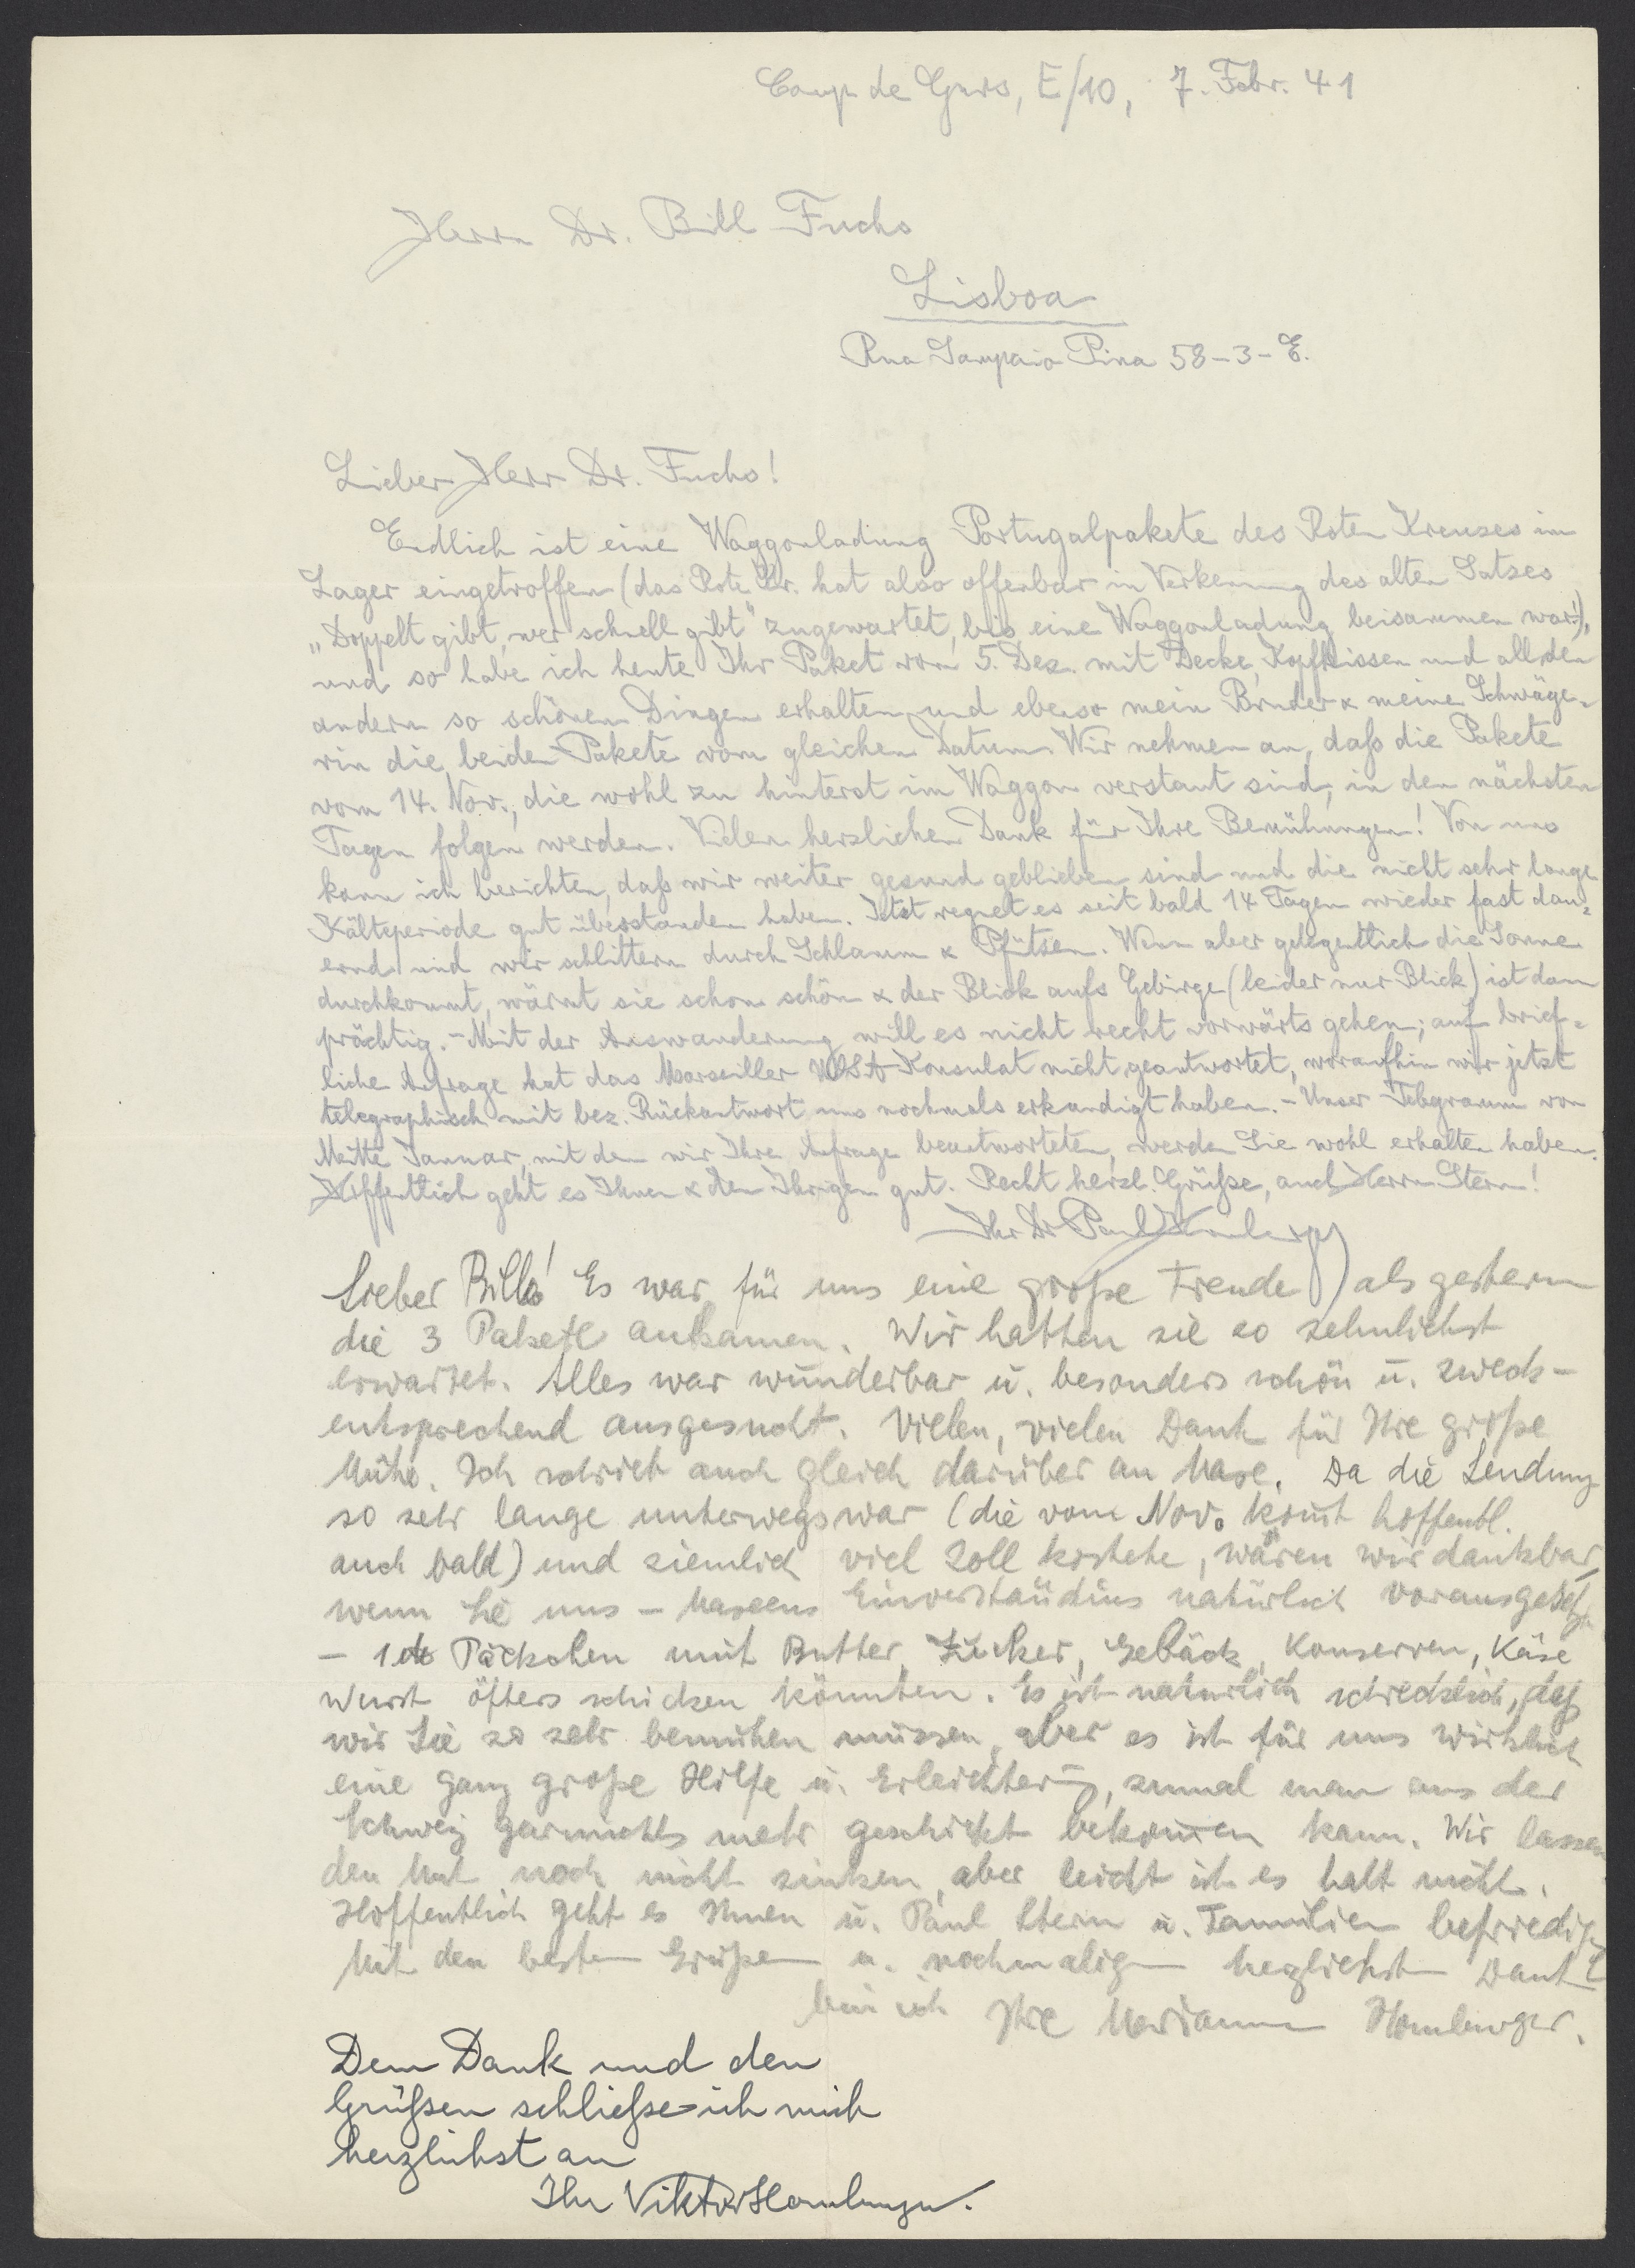 Camp de Gurs, E/10, 7. Febr. 41
Herrn Dr. Bill Fuchs
Lisboa
Rua Sampaio Pina 58-3-E.
Lieber Herr Dr. Fuchs!
Endlich ist eine Waggonladung Portugalpakete des Roten Kreuzes im
Lager eingetroffen (das Rote Kr. hat also offenbar in Verkennung des alten Satzes
„Doppelt gibt, wer schnell gibt" zugewartet, bis eine Waggonladung beisammen war!),
und so habe ich heute Ihr Paket vom 5. Dez. mit Decke, Kopfkissen und all den
andern so schönen Dingen erhalten und ebenso mein Bruder & meine Schwäge-
rin die beiden Pakete vom gleichen Datum. Wir nehmen an, daß die Pakete
vom 14. Nov., die wohl zu hinterst im Waggon verstaut sind, in den nächsten
Tagen folgen werden. Vielen herzlichen Dank für Ihre Bemühungen! Von uns
kann ich berichten, daß wir weiter gesund geblieben sind und die nicht sehr lange
Kälteperiode gut überstanden haben. Jetzt regnet es seit bald 14 Tagen wieder fast dau-
ernd und wir schlittern durch Schlamm & Pfützen. Wenn aber gelegentlich die Sonne
durchkommt, wärmt sie schon schön & der Blick aufs Gebirge (leider nur Blick) ist dann
prächtig. - Mit der Auswanderung will es nicht recht vorwärts gehen; auf brief-
liche Anfrage hat das Marseiller USA-Konsulat nicht geantwortet, woraufhin wir jetzt
telegraphisch mit bez. Rückantwort uns nochmals erkundigt haben. - Unser Telegramm von
Mitte Januar, mit dem wir Ihre Anfrage beantworteten, werden Sie wohl erhalten haben.
Hoffentlich geht es Ihnen & den Ihrigen gut. Recht herzl. Grüße, auch Herrn Stern!
Ihr Dr Paul Homburger
Lieber Bill! Es war für uns eine große Freude, als gestern
die 3 Pakete ankamen. Wir hatten sie so sehnlichst
erwartet. Alles war wunderbar u. besonders schön u. zweck-
entsprechend ausgesucht. Vielen, vielen Dank für Ihre große
Mühe. Ich schrieb auch gleich darüber an Mase. Da die Sendung
so sehr lange unterwegs war (die vom Nov. komt hoffentl.
auch bald) und ziemlich viel Zoll kostete, wären wir dankbar,
wenn Sie uns - Maseens Einverständnis natürlich vorausgesetzt
- 1 Päckchen mit Butter, Zucker, Gebäck, Konserven, Käse
Wurst öfters schicken könnten. Es ist natürlich schrecklich, daß
wir Sie so sehr bemühen müssen, aber es ist für uns wirklich
eine ganz große Hilfe u. Erleichterg, zumal man aus der
Schweiz garnichts mehr geschickt bekomen kann. Wir lassen
den Mut noch nicht sinken, aber leicht ist es halt nicht.
Hoffentlich geht es Ihnen u. Paul Stern u. Familien befriedigd
Mit den besten Grüßen u. nochmaligem herzlichst Dank
bin ich Ihre Marianne Homburger.
Dem Dank und den
Grüßen schließe ich mich
herzlichst an
Ihr Viktor Homburger.